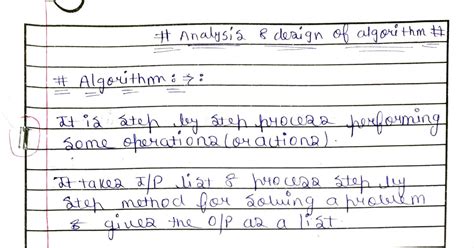 # Analysis & design of algorithm #
# Algorithm : →:
It is step by step process performing
some operations (or actions).
It takes I/P list & process step by
step method for solving a problem
& gives the O/P as a list.